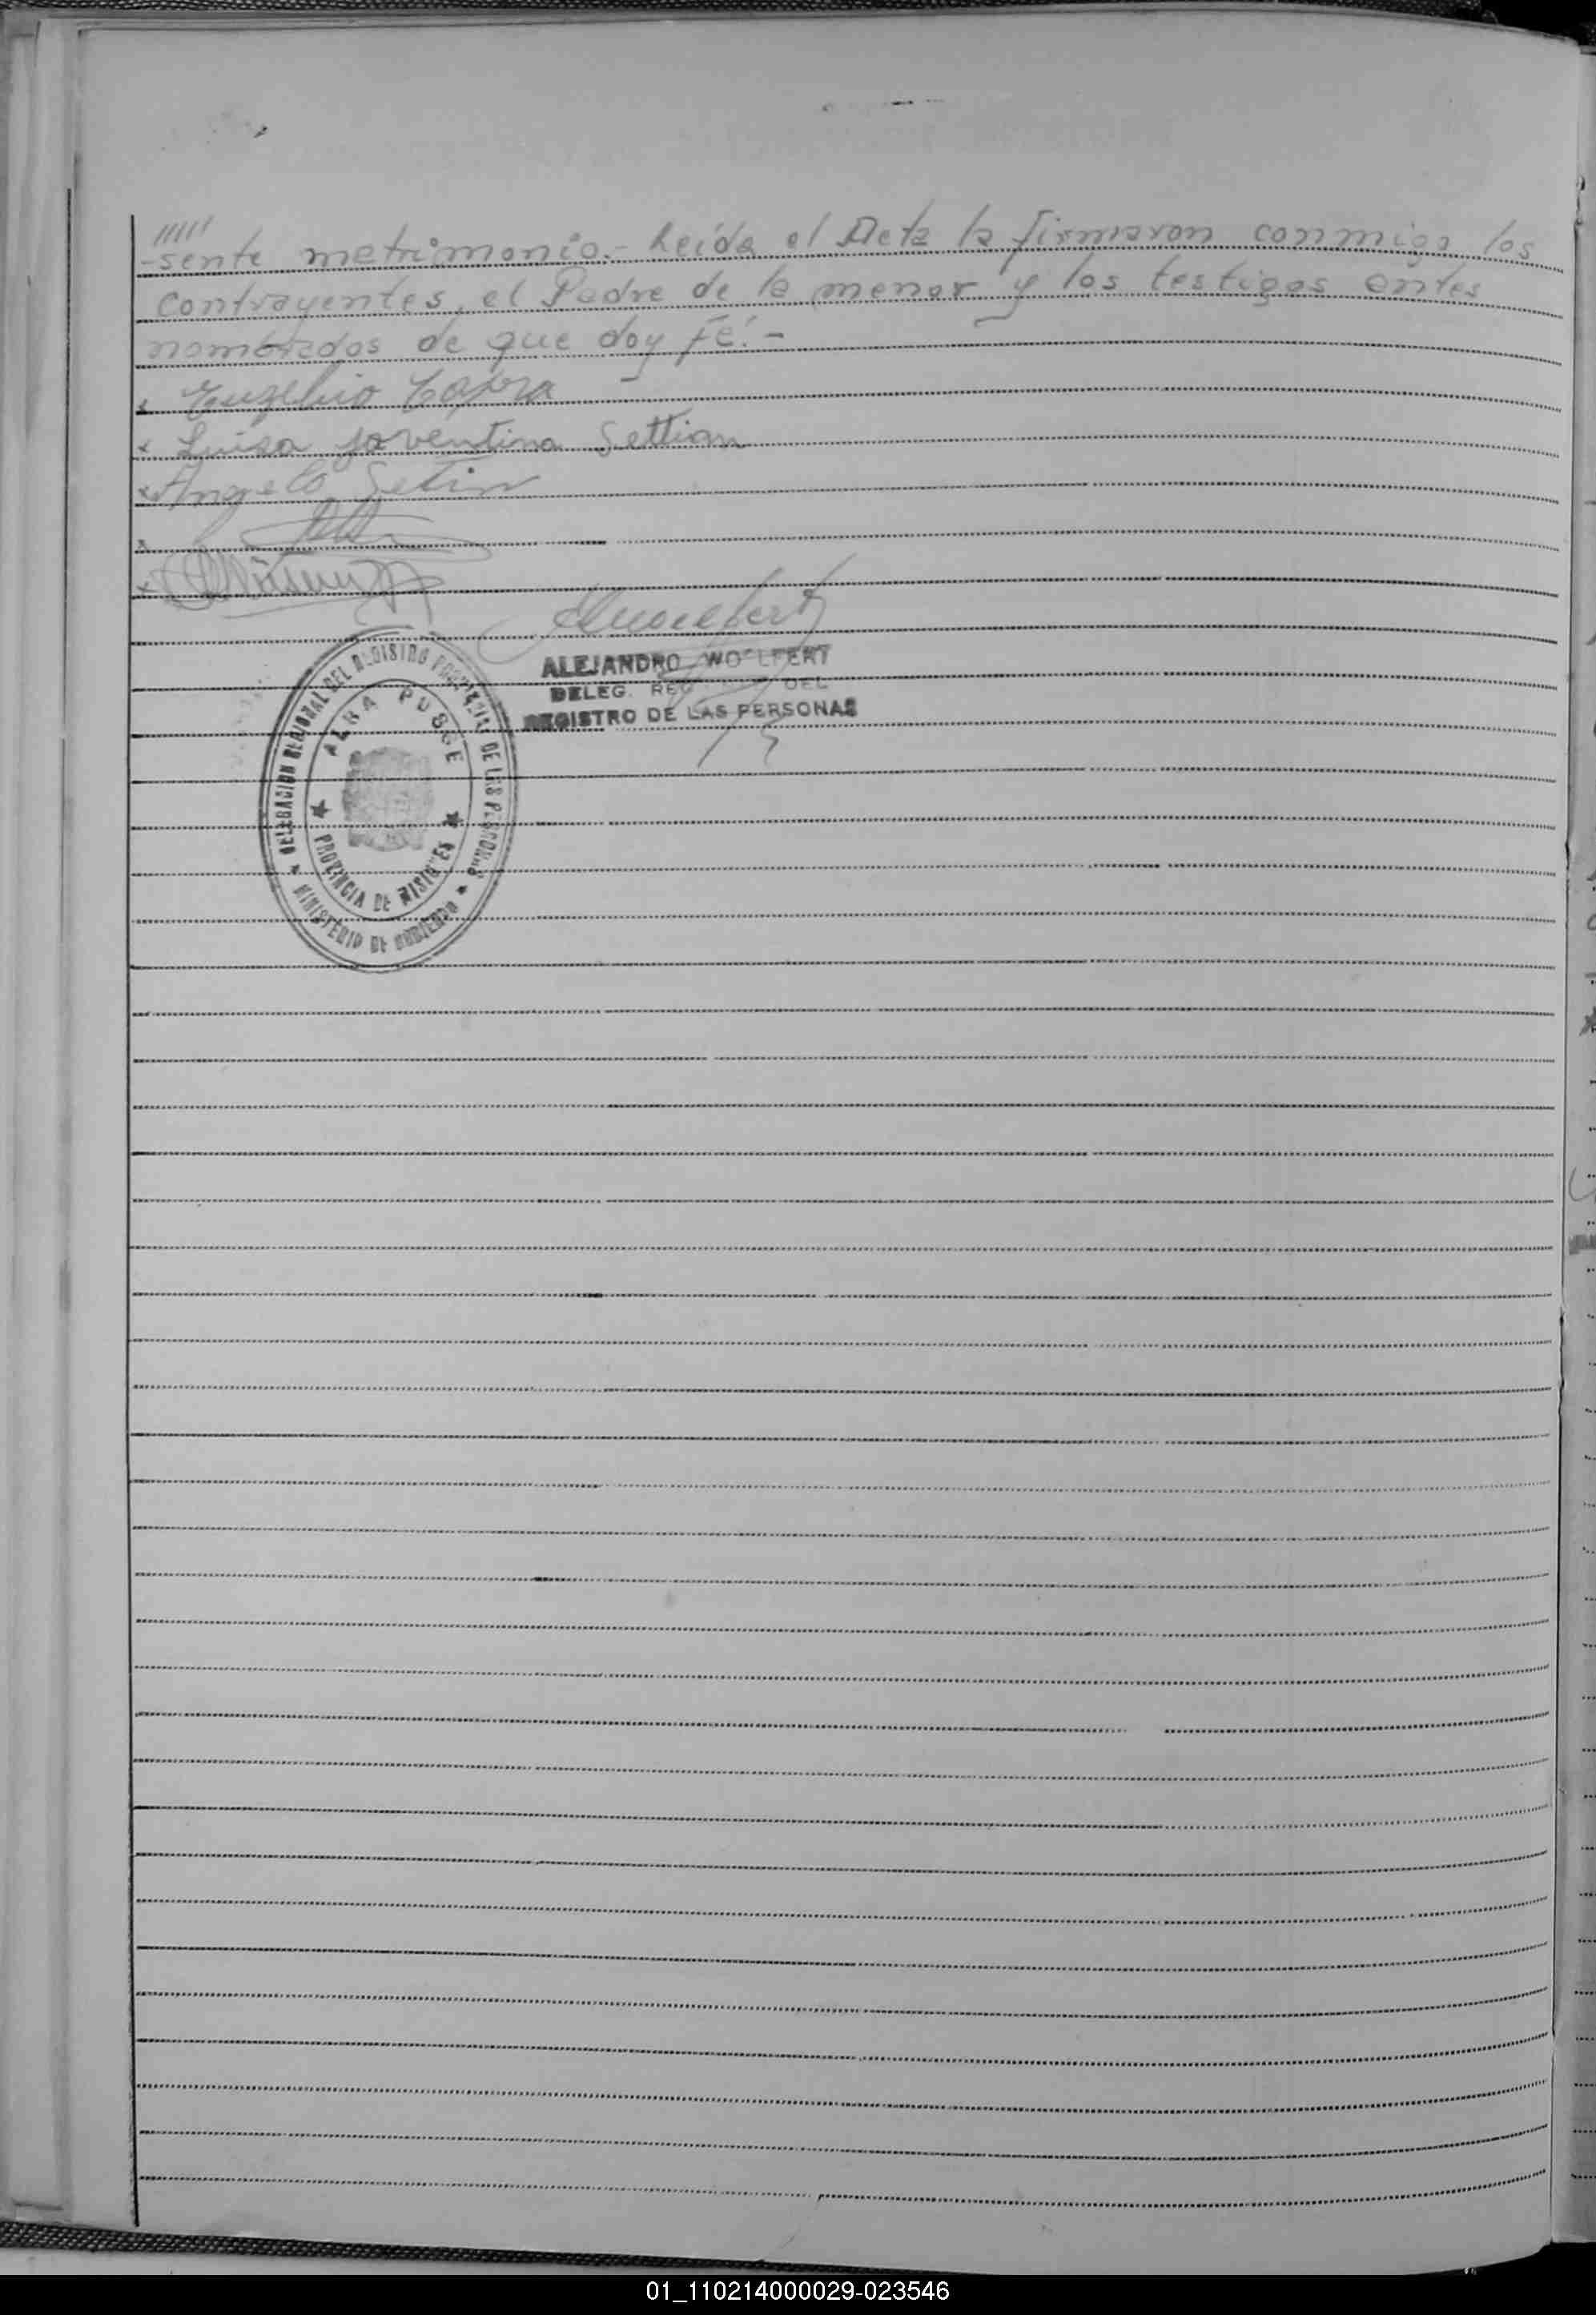 /////
-sente matrimonio.- Leída el Acta la firmaron conmigo los
contrayentes, el Padre de la menor y los testigos antes
nombrados de que doy Fé.-
x Euzebio Capra
x Luisa Joventina Settian
x Angelo Setin
x
x
ALEJANDRO WOELFERT
DELEG. REG DEL
REGISTRO DE LAS PERSONAS
DELEGACION REGIONAL DEL REGISTRO PROVINCIAL DE LAS PERSONAS
ALBA POSSE
PROVINCIA DE MISIONES
MINISTERIO DE GOBIERNO
01_110214000029-023546